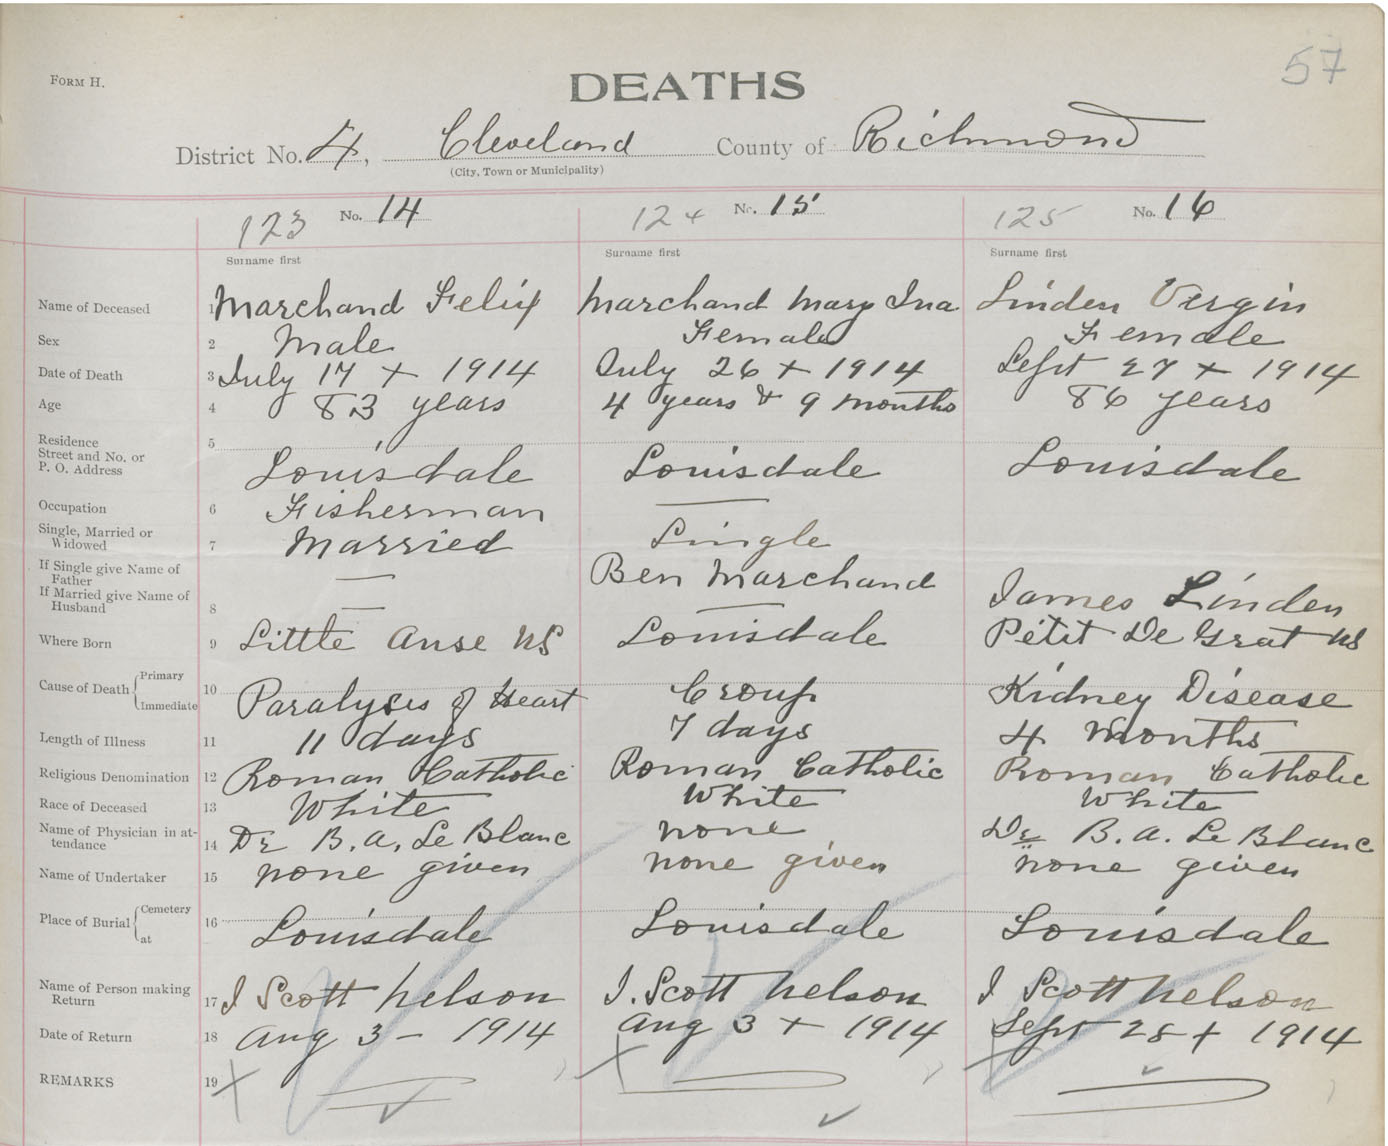 57
FORM H.
DEATHS
District No. 4, Cleveland County of Richmond
(City, Town or Municipality)
123 No. 14 124 No. 15 125 No. 16
Surname first Surname first Surname first
Name of Deceased 1 Marchand Felix Marchand Mary Ina Linden Vergin
Sex 2 Male Female Female
Date of Death 3 July 17 + 1914 July 26 + 1914 Sept 27 + 1914
Age 4 83 years 4 years & 9 months 86 years
Residence 5
Street and No. or
P. O. Address Louisdale Louisdale Louisdale
Occupation 6 Fisherman —
Single, Married or
Widowed 7 Married Single
If Single give Name of
Father — Ben Marchand
If Married give Name of
Husband 8 — — James Linden
Where Born 9 Little Anse NS Louisdale Petit De Grat NS
Cause of Death { Primary
Immediate 10 Paralysis of Heart Croup Kidney Disease
Length of Illness 11 11 days 7 days 4 Months
Religious Denomination 12 Roman Catholic Roman Catholic Roman Catholic
Race of Deceased 13 White White White
Name of Physician in at-
tendance 14 Dr B. A. Le Blanc none Dr B. A. Le Blanc
Name of Undertaker 15 none given none given none given
Place of Burial { Cemetery
at 16 Louisdale Louisdale Louisdale
Name of Person making
Return 17 J Scott Nelson J. Scott Nelson J Scott Nelson
Date of Return 18 Aug 3 - 1914 Aug 3 + 1914 Sept 28 + 1914
REMARKS 19